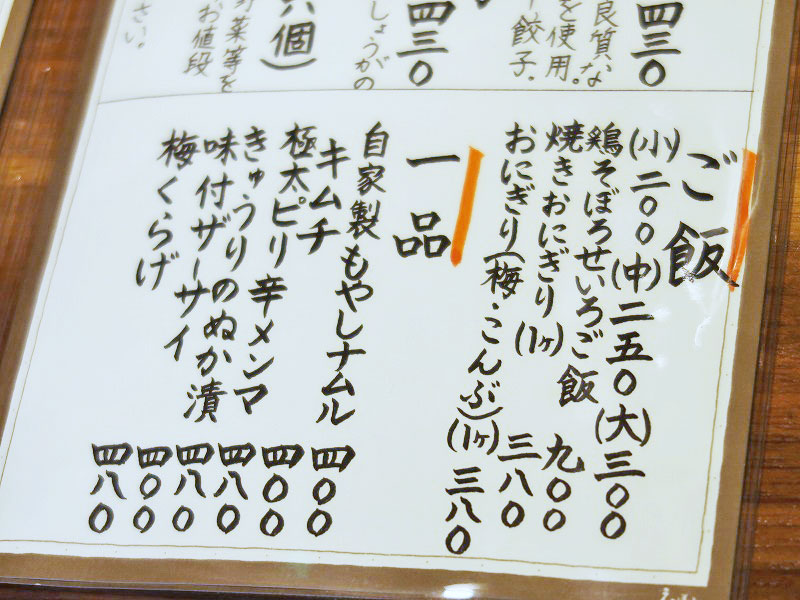 四三〇
良質な
を使用。
餃子.
四三〇
しょうがの
個)
野菜等を
お値段
さい。
ご飯
(小)二〇〇(中)二五〇(大)三〇〇
鶏そぼろせいろご飯 九〇〇
焼きおにぎり(1ヶ) 三八〇
おにぎり(梅・こんぶ)(1ヶ) 三八〇
一品
自家製もやしナムル 四〇〇
キムチ 四〇〇
極太ピリ辛メンマ 四八〇
きゅうりのぬか漬 四八〇
味付ザーサイ 四〇〇
梅くらげ 四八〇